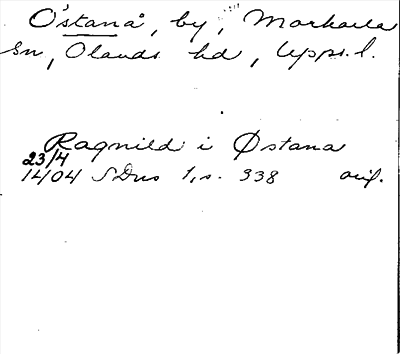 Östanå, by, Morkarla
sn, Olands hd, Upps. l.
Ragnild i Østana
23/4
1404 SDns 1, s. 338 orig.